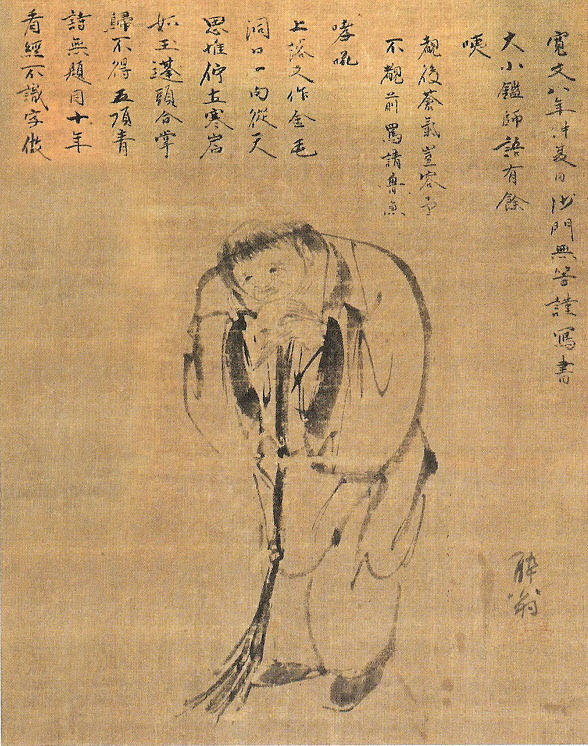 看經不識字做
詩無題目十年
歸不得五頂青
如玉蓬頭合掌
思惟佇立寒岩
洞口一向從天
上 又作金毛
哮吼
不覩前 請魯魚
覩後蒼 豈容予
咦
大小鑑師語有餘
寛文八年仲夏日沙門無等謹寫書
酔翁